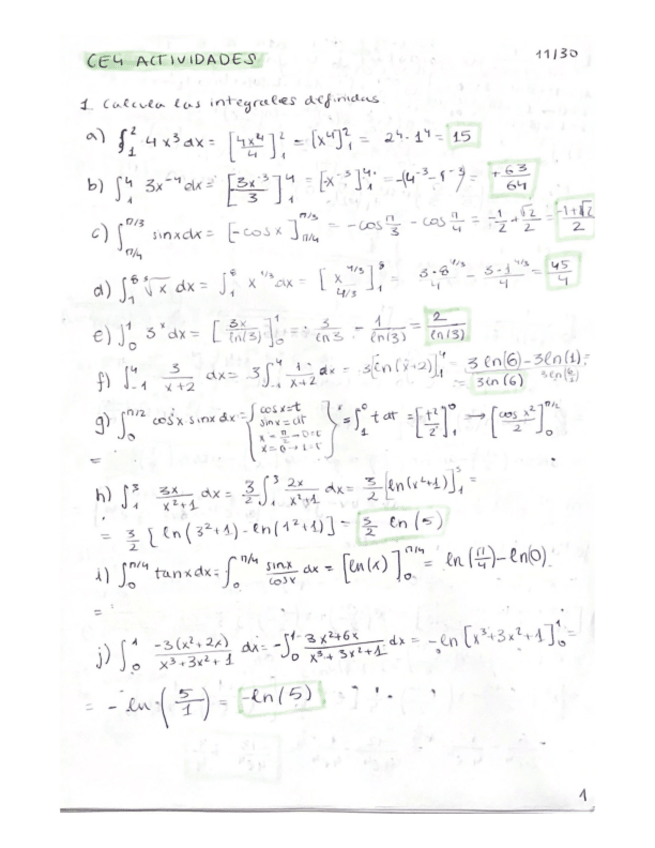 CE4 ACTIVIDADES
11/30
1. Calcula las integrales definidas
a) ∫₁² 4x³dx = [4x⁴/4]₁² = [x⁴]₁² = 2⁴-1⁴ = 15
b) ∫₁⁴ 3x⁻⁴dx = [3x⁻³/3]₁⁴ = [-x⁻³]₁⁴ = -(4⁻³-1⁻³) = +63/64
c) ∫_{π/4}^{π/3} sinxdx = [-cosx]_{π/4}^{π/3} = -cos π/3 - cos π/4 = -1/2 + √2/2 = -1+√2/2
d) ∫₁⁸ ³√x dx = ∫₁⁸ x^{1/3} dx = [x^{4/3}/4/3]₁⁸ = 3·8^{4/3}/4 - 3·1^{4/3}/4 = 45/4
e) ∫₀¹ 3ˣdx = [3x/ln(3)]₀¹ = 3/ln3 - 1/ln(3) = 2/ln(3)
f) ∫₋₁⁴ 3/x+2 dx = 3∫₋₁⁴ 1/x+2 dx = 3[ln(x+2)]₋₁⁴ = 3ln(6)-3ln(1) =
= 3ln(6)
g) ∫₀^{π/2} cosx·sinxdx = { cosx=t sinx=dt } = ∫₁⁰ t dt = [t²/2]₁⁰ → [cosx²/2]₀^{π/2}
=
h) ∫₁³ 3x/x²+1 dx = 3/2 ∫₁³ 2x/x²+1 dx = 3/2 [ln(x²+1)]₁³ =
= 3/2 [ln(3²+1)-ln(1²+1)] = 3/2 ln(5)
i) ∫₀^{π/4} tanxdx = ∫₀^{π/4} sinx/cosx dx = [ln(x)]₀^{π/4} = ln(π/4)-ln(0)
=
j) ∫₀¹ -3(x²+2x)/x³+3x²+1 dx = -∫₀¹ 3x²+6x/x³+3x²+1 dx = -ln[x³+3x²+1]₀¹ =
= -ln(5/1) = -ln(5)
1